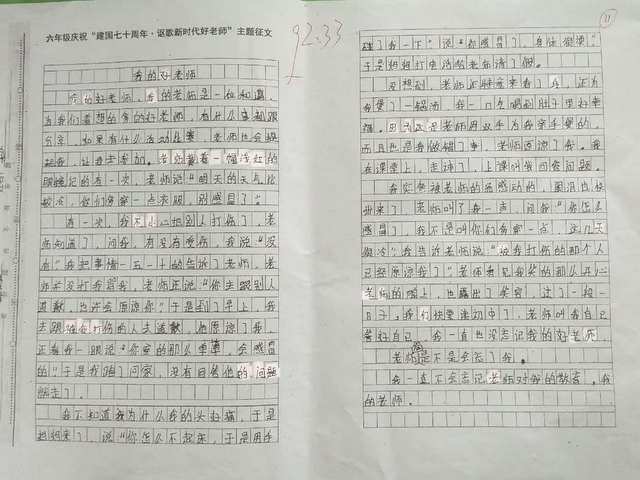 六年级庆祝“建国七十周年·讴歌新时代好老师”主题征文
92.33
我的好老师
我的好老师,我的老师是一位和蔼,
为我们着想的
好老师,有什么事都跟
分享,如果有什么活动比赛,老师也会
让我去参加。老师戴着一幅浅红的
眼镜记的有一次,老师说“明天的天气比
较冷,你们多穿一点衣服,别感冒了”
有一次,我不小心把别人打伤了,老
师知道了,问我,有没有受伤,我说“没
有”我把事情一五一十的告诉了老师,老
师并没打我骂我,老师还说“你去跟别人
道歉,也许会原谅你”于是到了早上,我
去跟被我打伤的人去道歉,他原谅了我,
还看我一眼说“你穿的那么单薄,会感冒
的”于是我跑了回家,没有回答他的问题
就走了。
我不知道我为什么我的头好痛,于是
妈妈来了,说“你怎么不起床,于是用手
11
碰了我一下”说“你感冒了,身体很烫”
于是妈妈打电话给老师请了假。
没想到,老师还特意来看了我,还为
我煲了一锅汤,我一口气喝到肚子里好幸
福。因为这是老师用双手为我亲手煲的,
而且也是我做错了事,老师原谅了我。我
在课堂上,走神了,上课叫我回答问题。
我实突被老师的
感动的,眼泪都快
出来了,老师叫了我一声,问我“你怎么
感冒了,我不是叫你们多穿一点,这几天
很冷”我告诉老师说“被我打伤的那个人
已经原谅我了”老师看见我笑的那么开心
老师的嘴上,也露出了笑容,过了一段
日子,我们快要运动中了,老师叫我自己
答好自己,我一直也没忘记我的好老师,
老师
是不是会忘了我。
我一直不会忘记老师对我的教育。我
的老师。